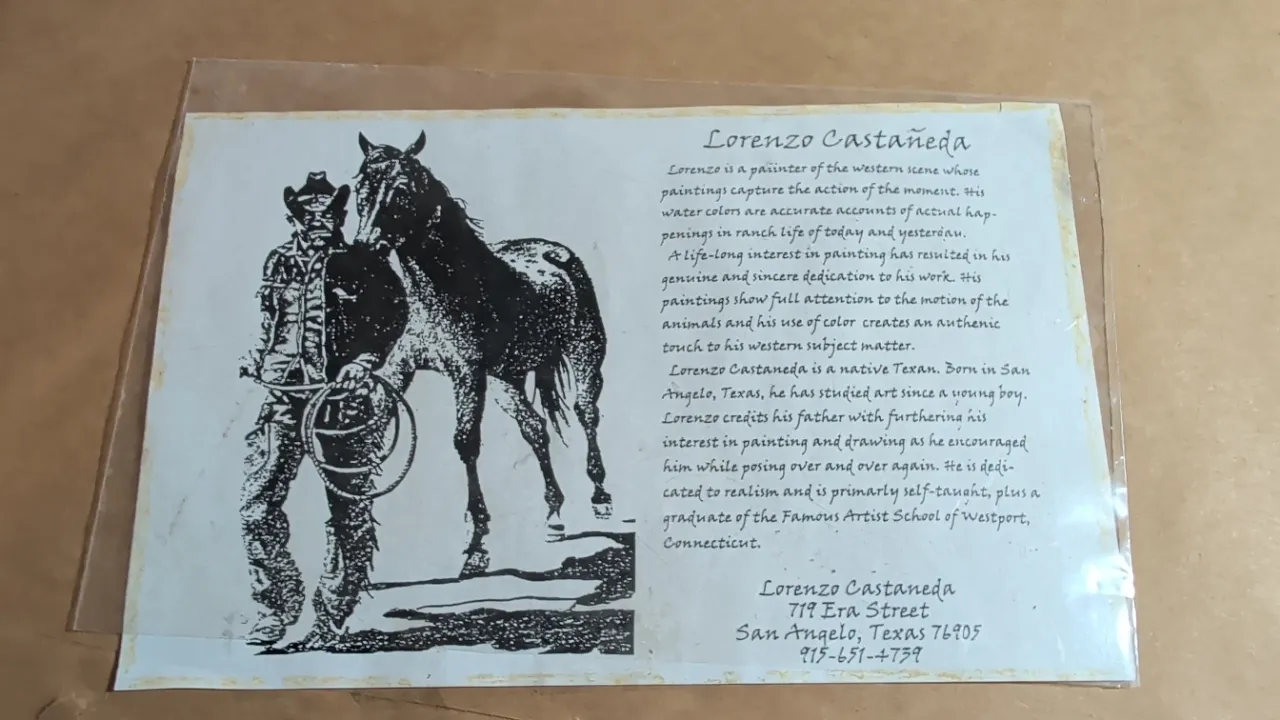 Lorenzo Castañeda
Lorenzo is a paiinter of the western scene whose
paintings capture the action of the moment. His
water colors are accurate accounts of actual hap-
penings in ranch life of today and yesterday.
A life-long interest in painting has resulted in his
genuine and sincere dedication to his work. His
paintings show full attention to the motion of the
animals and his use of color creates an authenic
touch to his western subject matter.
Lorenzo Castaneda is a native Texan. Born in San
Angelo, Texas, he has studied art since a young boy.
Lorenzo credits his father with furthering his
interest in painting and drawing as he encouraged
him while posing over and over again. He is dedi-
cated to realism and is primarly self-taught, plus a
graduate of the Famous Artist School of Westport,
Connecticut.
Lorenzo Castaneda
719 Era Street
San Angelo, Texas 76905
915-651-4739